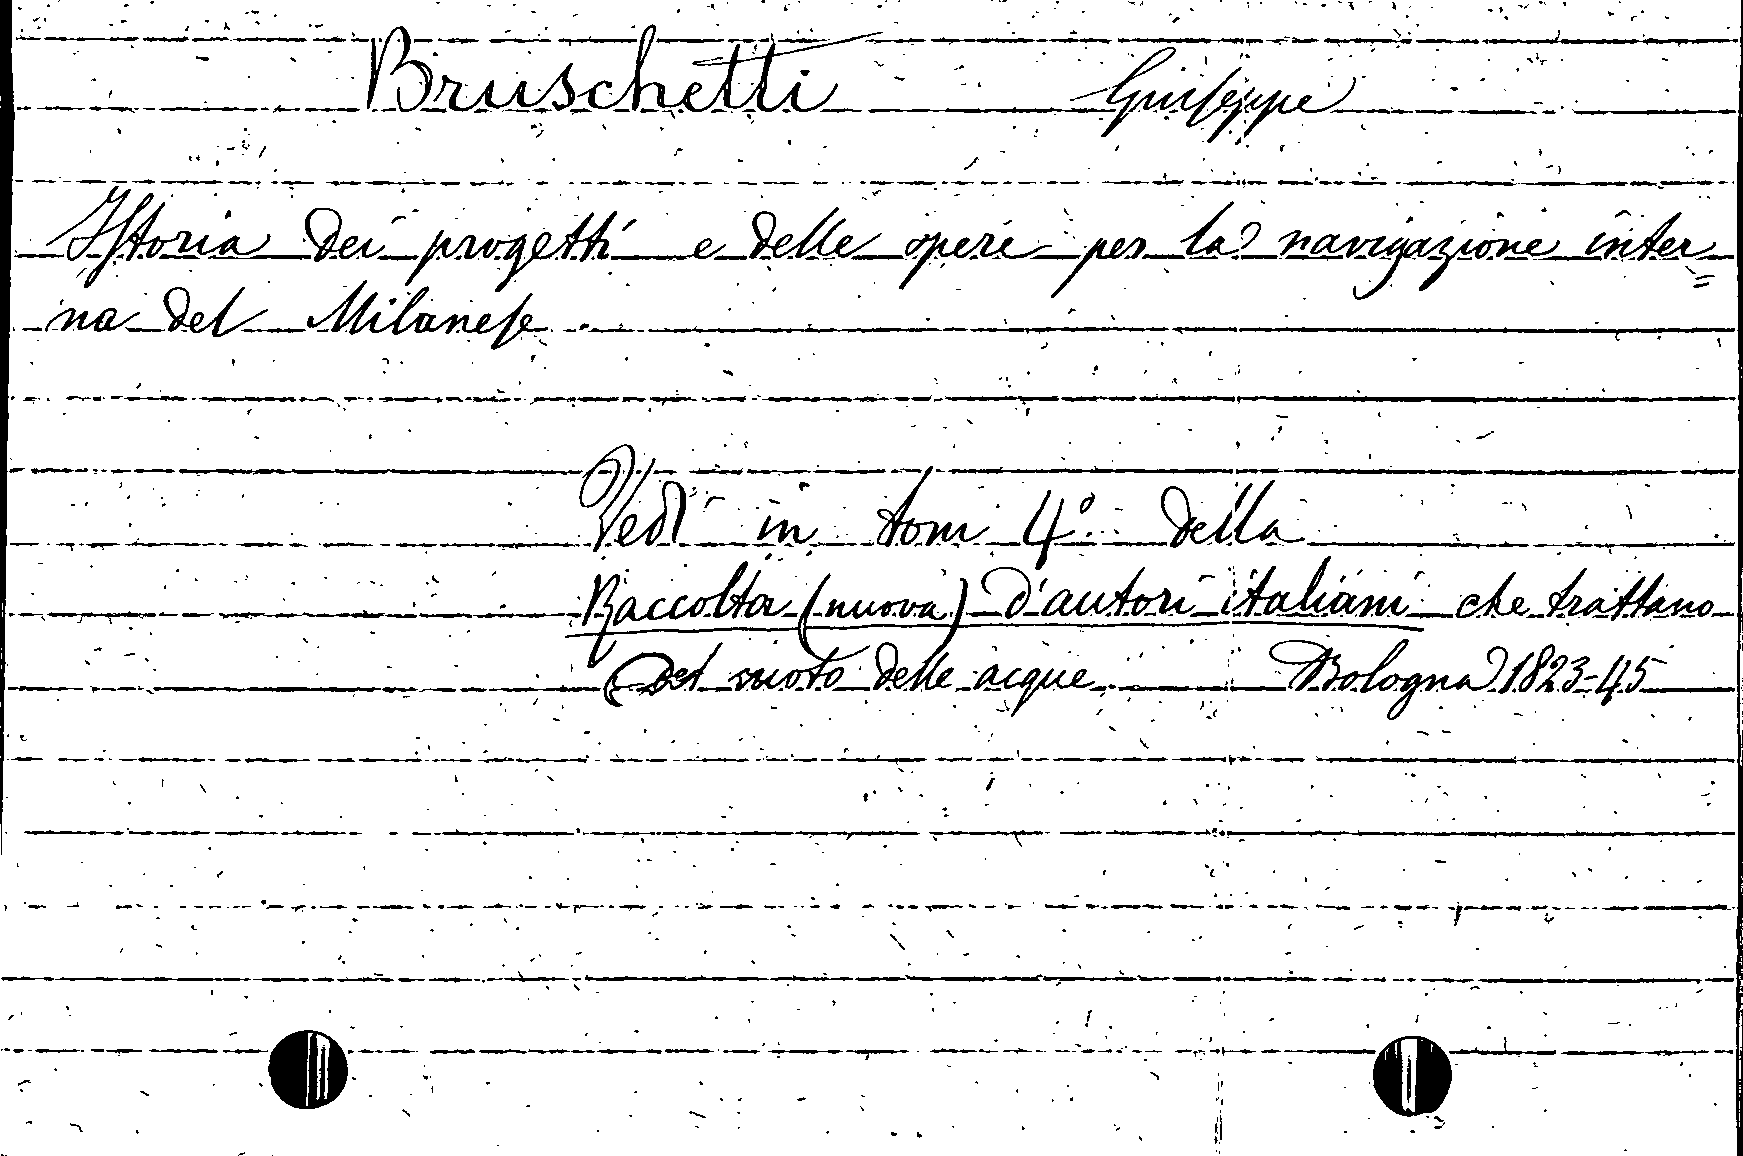 Bruschetti Giuseppe
Istoria dei progetti e delle opere per la navigazione inter=
na del Milanese.
Vedi in tom 4º della
Raccolta (nuova) d'autori italiani che trattano
del moto delle acque Bologna 1823-45